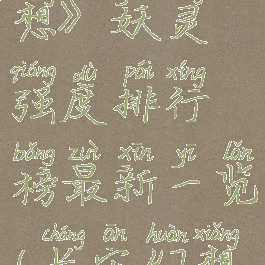 想》妖灵
qiáng dù pái xíng
强度排行
bǎng zuì xīn yī lǎn
榜最新一览
cháng ān huàn xiǎng